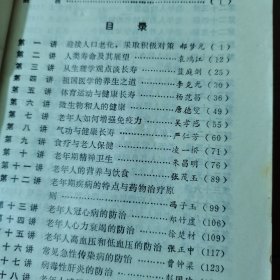 目录
第一讲 迎接人口老化，采取积极对策 邬梦九（1）
第二讲 人类寿命及其展望 袁鸿江（12）
第三讲 从生理学观点谈长寿 （23）
第四讲 祖国医学的养生之道 李克光（34）
第五讲 体育运动与健康长寿 杨范昌（46）
第六讲 微生物和人的健康 康德莹（56）
第七讲 老年人如何增强免疫力 吴孝感（65）
第八讲 气功与健康长寿 严仁芳（76）
第九讲 食疗与老人保健 凌一揆（69）
第十讲 老年期精神卫生 朱昌明（
第十一讲 老年人的营养与饮食 张茂玉（
第十二讲 老年期疾病的特点与药物治疗原
则 冯于玉（99）
十三讲 老年人冠心病的防治 邓竹虚（109）
十四讲 老年人心力衰竭的防治 徐楚材（119）
十五讲 老年人高血压和低血压的防治 张正中（
十六讲 常见急性传染病的防治 曹钟梁（
十七讲 病毒性肝炎的防治
十八讲